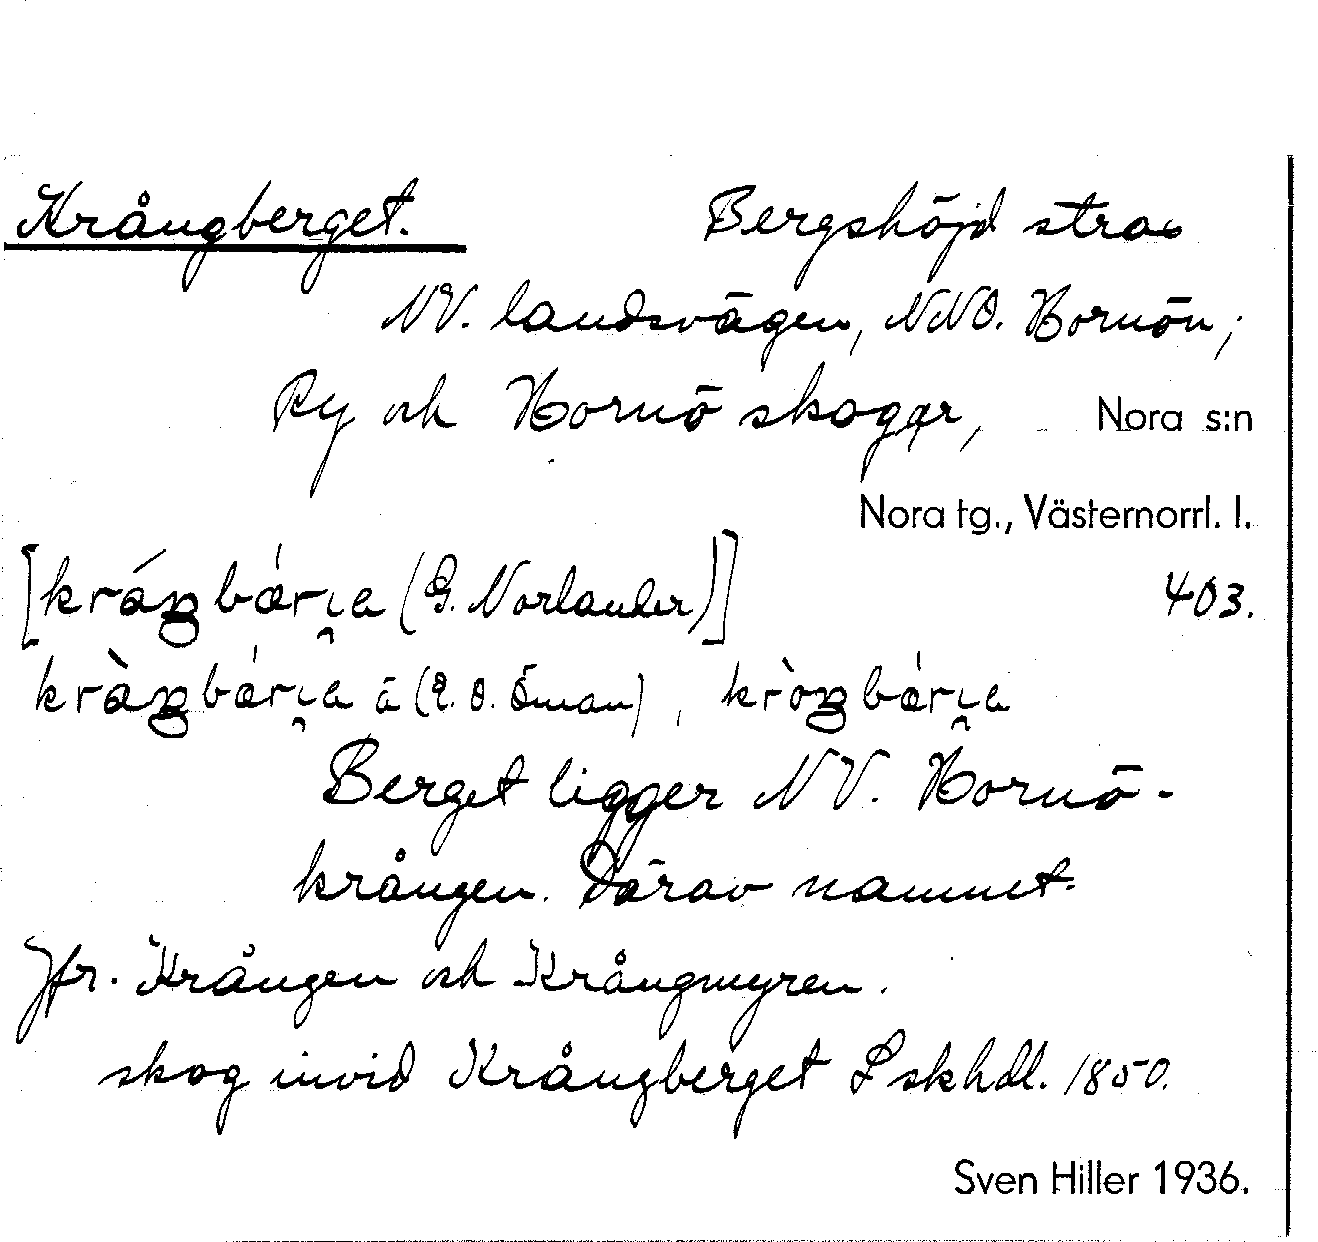 Krångberget. Bergshöjd strax
NV. landsvägen, NNO. Hornön;
Ry och Hornö skogar, Nora s:n
Nora tg., Västernorrl. l.
[kráŋbǽrɩa (G. Norlander)] 403.
kràŋbǽrɩa ā (E. O. Öman), kròŋbǽrɩa
Berget ligger NV. Hornö-
krången. Därav namnet.
Jfr. Krången och Krångmyren.
skog invid Krångberget L skhdl. 1850.
Sven Hiller 1936.